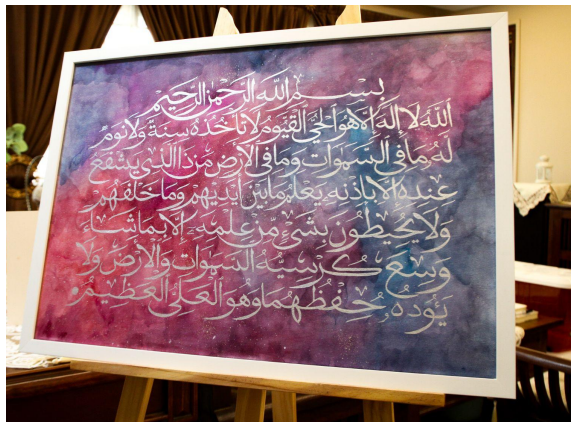 بِسْمِ اللَّهِ الرَّحْمٰنِ الرَّحِيْمِ
اَللَّهُ لَا إِلٰهَ إِلَّا هُوَ الْحَيُّ الْقَيُّوْمُ لَا تَأْخُذُهُ سِنَةٌ وَلَا نَوْمٌ
لَهُ مَا فِى السَّمٰوَاتِ وَمَا فِى الْأَرْضِ مَنْ ذَا الَّذِي يَشْفَعُ
عِنْدَهُ إِلَّا بِإِذْنِهِ يَعْلَمُ مَا بَيْنَ أَيْدِيْهِمْ وَمَا خَلْفَهُمْ
وَلَا يُحِيْطُوْنَ بِشَيْءٍ مِّنْ عِلْمِهِ إِلَّا بِمَا شَاءَ
وَسِعَ كُرْسِيُّهُ السَّمٰوَاتِ وَالْأَرْضَ وَلَا
يَؤُدُهُ حِفْظُهُمَا وَهُوَ الْعَلِيُّ الْعَظِيْمُ